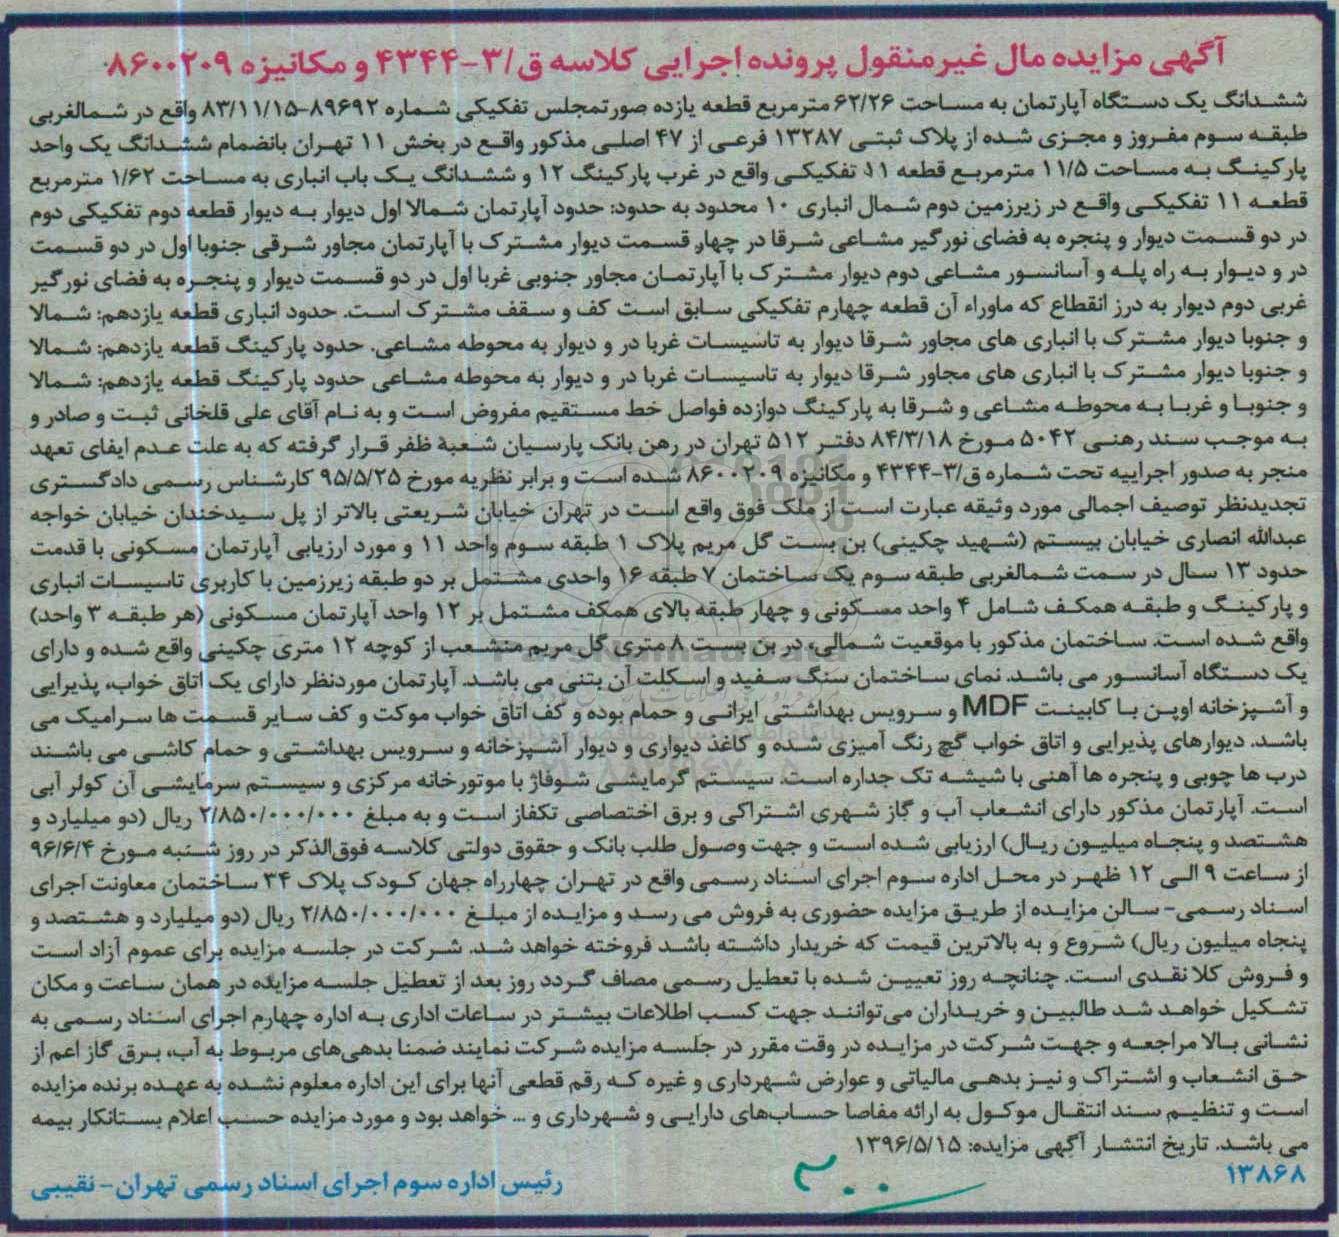 آگهی مزایده مال غیرمنقول پرونده اجرایی کلاسه ق/۳-۴۳۴۴ و مکانیزه ۸۶۰۰۲۰۹
ششدانگ یک دستگاه آپارتمان به مساحت ۶۲/۲۶ مترمربع قطعه یازده صورتمجلس تفکیکی شماره ۸۹۶۹۲-۸۳/۱۱/۱۵ واقع در شمالغربی
طبقه سوم مفروز و مجزی شده از پلاک ثبتی ۱۳۲۸۷ فرعی از ۴۷ اصلی مذکور واقع در بخش ۱۱ تهران بانضمام ششدانگ یک واحد
پارکینگ به مساحت ۱۱/۵ مترمربع قطعه ۱۱ تفکیکی واقع در غرب پارکینگ ۱۲ و ششدانگ یک باب انباری به مساحت ۱/۶۲ مترمربع
قطعه ۱۱ تفکیکی واقع در زیرزمین دوم شمال انباری ۱۰ محدود به حدود: حدود آپارتمان شمالا اول دیوار به دیوار قطعه دوم تفکیکی دوم
در دو قسمت دیوار و پنجره به فضای نورگیر مشاعی شرقا در چهار قسمت دیوار مشترک با آپارتمان مجاور شرقی جنوبا اول در دو قسمت
در و دیوار به راه پله و آسانسور مشاعی دوم دیوار مشترک با آپارتمان مجاور جنوبی غربا اول در دو قسمت دیوار و پنجره به فضای نورگیر
غربی دوم دیوار به درز انقطاع که ماوراء آن قطعه چهارم تفکیکی سابق است کف و سقف مشترک است. حدود انباری قطعه یازدهم: شمالا
و جنوبا دیوار مشترک با انباری های مجاور شرقا دیوار به تاسیسات غربا در و دیوار به محوطه مشاعی. حدود پارکینگ قطعه یازدهم: شمالا
و جنوبا دیوار مشترک با انباری های مجاور شرقا دیوار به تاسیسات غربا در و دیوار به محوطه مشاعی حدود پارکینگ قطعه یازدهم: شمالا
و جنوبا و غربا به محوطه مشاعی و شرقا به پارکینگ دوازده فواصل خط مستقیم مفروض است و به نام آقای علی قلخانی ثبت و صادر و
به موجب سند رهنی ۵۰۴۲ مورخ ۸۴/۳/۱۸ دفتر ۵۱۲ تهران در رهن بانک پارسیان شعبهٔ ظفر قرار گرفته که به علت عدم ایفای تعهد
منجر به صدور اجراییه تحت شماره ق/۳-۴۳۴۴ و مکانیزه ۸۶۰۰۲۰۹ شده است و برابر نظریه مورخ ۹۵/۵/۲۵ کارشناس رسمی دادگستری
تجدیدنظر توصیف اجمالی مورد وثیقه عبارت است از ملک فوق واقع است در تهران خیابان شریعتی بالاتر از پل سیدخندان خیابان خواجه
عبدالله انصاری خیابان بیستم (شهید چکینی) بن بست گل مریم پلاک ۱ طبقه سوم واحد ۱۱ و مورد ارزیابی آپارتمان مسکونی با قدمت
حدود ۱۳ سال در سمت شمالغربی طبقه سوم یک ساختمان ۷ طبقه ۱۶ واحدی مشتمل بر دو طبقه زیرزمین با کاربری تاسیسات انباری
و پارکینگ و طبقه همکف شامل ۴ واحد مسکونی و چهار طبقه بالای همکف مشتمل بر ۱۲ واحد آپارتمان مسکونی (هر طبقه ۳ واحد)
واقع شده است. ساختمان مذکور با موقعیت شمالی، در بن بست ۸ متری گل مریم منشعب از کوچه ۱۲ متری چکینی واقع شده و دارای
یک دستگاه آسانسور می باشد. نمای ساختمان سنگ سفید و اسکلت آن بتنی می باشد. آپارتمان موردنظر دارای یک اتاق خواب، پذیرایی
و آشپزخانه اوپن با کابینت MDF و سرویس بهداشتی ایرانی و حمام بوده و کف اتاق خواب موکت و کف سایر قسمت ها سرامیک می
باشد. دیوارهای پذیرایی و اتاق خواب گچ رنگ آمیزی شده و کاغذ دیواری و دیوار آشپزخانه و سرویس بهداشتی و حمام کاشی می باشند
درب ها چوبی و پنجره ها آهنی با شیشه تک جداره است. سیستم گرمایشی شوفاژ با موتورخانه مرکزی و سیستم سرمایشی آن کولر آبی
است. آپارتمان مذکور دارای انشعاب آب و گاز شهری اشتراکی و برق اختصاصی تکفاز است و به مبلغ ۲/۸۵۰/۰۰۰/۰۰۰ ریال (دو میلیارد و
هشتصد و پنجاه میلیون ریال) ارزیابی شده است و جهت وصول طلب بانک و حقوق دولتی کلاسه فوق‌الذکر در روز شنبه مورخ ۹۶/۶/۴
از ساعت ۹ الی ۱۲ ظهر در محل اداره سوم اجرای اسناد رسمی واقع در تهران چهارراه جهان کودک پلاک ۳۴ ساختمان معاونت اجرای
اسناد رسمی- سالن مزایده از طریق مزایده حضوری به فروش می رسد و مزایده از مبلغ ۲/۸۵۰/۰۰۰/۰۰۰ ریال (دو میلیارد و هشتصد و
پنجاه میلیون ریال) شروع و به بالاترین قیمت که خریدار داشته باشد فروخته خواهد شد. شرکت در جلسه مزایده برای عموم آزاد است
و فروش کلا نقدی است. چنانچه روز تعیین شده با تعطیل رسمی مصاف گردد روز بعد از تعطیل جلسه مزایده در همان ساعت و مکان
تشکیل خواهد شد طالبین و خریداران می‌توانند جهت کسب اطلاعات بیشتر در ساعات اداری به اداره چهارم اجرای اسناد رسمی به
نشانی بالا مراجعه و جهت شرکت در مزایده در وقت مقرر در جلسه مزایده شرکت نمایند ضمنا بدهی‌های مربوط به آب، برق گاز اعم از
حق انشعاب و اشتراک و نیز بدهی مالیاتی و عوارض شهرداری و غیره که رقم قطعی آنها برای این اداره معلوم نشده به عهده برنده مزایده
است و تنظیم سند انتقال موکول به ارائه مفاصا حساب‌های دارایی و شهرداری و ... خواهد بود و مورد مزایده حسب اعلام بستانکار بیمه
می باشد. تاریخ انتشار آگهی مزایده: ۱۳۹۶/۵/۱۵
۱۳۸۶۸
رئیس اداره سوم اجرای اسناد رسمی تهران- نقیبی
۳۰۰